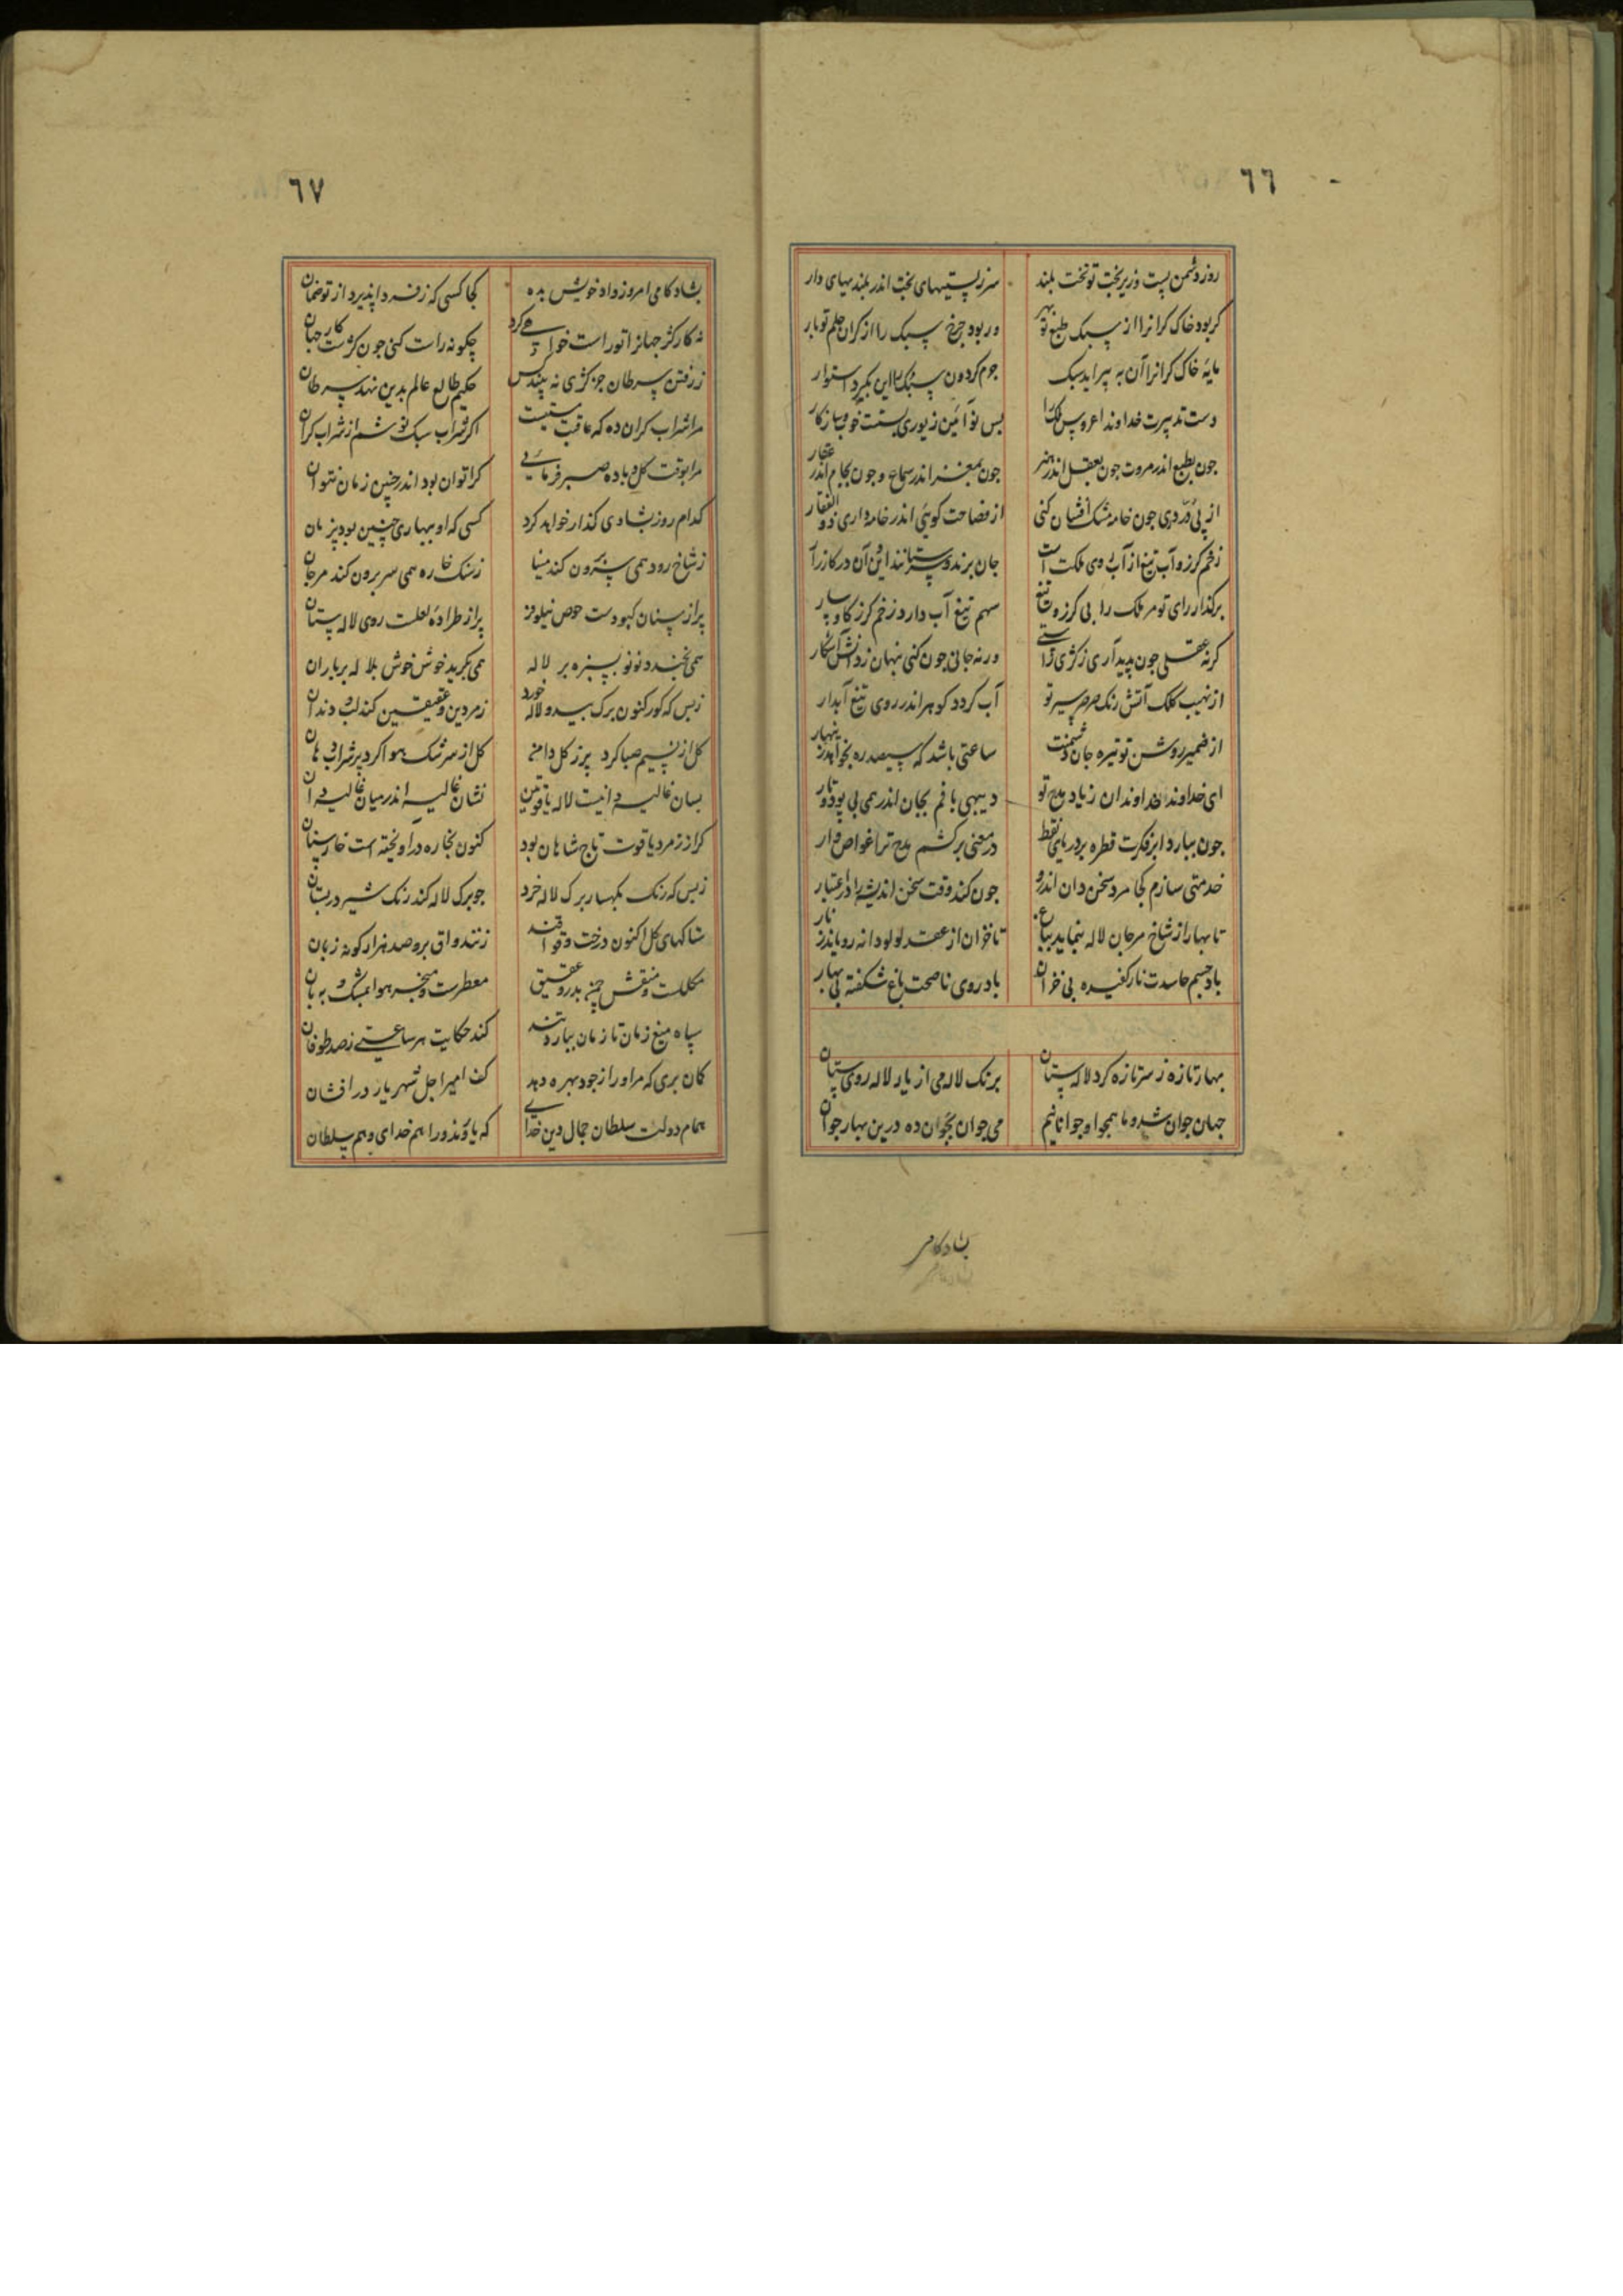 ٦٦
روز دشمن پست و زیر بخت تو تخت بلند سر ز پستیهای بخت اندر بلندیهای دار
کر بود خاک کرانرا از سبک طبع تو بهر ور بود چرخ سبک را از کران حلم تو بار
مایهٔ خاک کرانرا آن به پیراید سبک جرم کردون سبک را این بگیرد استوار
دست تدبیرت خداوندا عروس ملک را بس نو آئین زیوری بستت خوب و سازکار
جون بطبع اندر مروت جون بعقل اندر هنر جون بمغز اندر سماع و جون بجام اندر عقار
از پی در دری جون خامه مشک افشان کنی از فصاحت کویئ اندر خامه داری ذوالفقار
زخم کرز و آب تیغ از آب روی ملکت است جان برند و بستانند این و آن در کارزار
برکذار رای تو مر ملک را بی کرز و تیغ سهم تیغ آب دار و زخم کرز کاوسار
کر نه عقلی جون پدید آری ز کژی راستی ور نه جانی جون کنی نهان ز دانش آشکار
از نهیب کلک آتش رنک صرصر سیر تو آب کردد کوهر اندر روی تیغ آبدار
از ضمیر روشن تو تیره جان دشمنت ساعتی باشد که سیصد ره بخواهد زینهار
ای خداوند خداوندان زیاد مدح تو دیبهی بافم بجان اندر همی بی پود و تار
جون ببارد ابر فکرت قطره بر دریای لفظ در معنی برکشم مدح ترا غواص وار
خدمتی سازم کجا مرد سخن دان اندرو جون کند وقت سخن اندیشه را در اعتبار
تا بهار از شاخ مرجان لاله بنماید بباغ تا خزان از عقد لولو دانه رویاند ز نار
باد جسم حاسدت نار کفیده بی خزان باد روی ناصحت باغ شکفته بی بهار
بهار تازه ز سر تازه کرد لاله ستان برنک لاله می از یار لاله روی ستان
جهان جوان شد و ما همجو او جوانانیم می جوان بجوان ده درین بهار جوان
شادکامی
٦٧
بشادکامی امروز داد خویش بده کجا کسی که ز فردا پذیرد از تو ضمان
نه کار کژ جهانرا تو راست خواهی کرد چکونه راست کنی جون کژست کار جهان
ز رفتن سرطان جز کژی نه بیندس حکیم طالع عالم بدین نهد سرطان
مرا شراب کران ده که عاقبت مستیست اکر شراب سبک نوشم از شراب کران
مرا بوقت کل و باده صبر فرمائی کرا توان بود اندر چنین زمان نتوان
کدام روز بشادی کذار خواهد کرد کسی که او ببهاری چنین بود پژمان
ز شاخ رود همی سر برون کند مینا ز سنک خاره همی سر برون کند مرجان
پر از سنان کبودست حوض نیلوفر پر از طرادهٔ لعلت روی لاله ستان
همی بخندد نو نو بسبزه بر لاله همی بکرید خوش خوش بلاله بر باران
ز بس که کور کنون برک سبزه و لاله خورد زمردین و عقیقین کند لب و دندان
کل از نسیم صبا کرد پر ز کل دامن کل از سرشک هوا کرد پر شراب دهان
بسان غالیه دانیست لاله یاقوتین نشان غالیه اندر میان غالیه دان
کر از زمرد و یاقوت تاج شاهان بود کنون بخاره در آویخته است خارستان
ز بس که رنک بکهسار برک لاله خورد جو برک لاله کند رنک شیر در پستان
شاکهای کل اکنون درخت وقوا قند زنند واق برو صد هزار کونه زبان
مکللست و منقش چمن بدر و عقیق معطرست و مبخر هوا بمشک و به بان
سپاه میغ زمان تا زمان ببارد تند کند حکایت هر ساعتی ز صد طوفان
کمان بری که مر او را ز جود بهره دهد کف امیر اجل شهریار در افشان
همام دولت سلطان جمال دین خدای که یاورند ورا هم خدای و هم سلطان